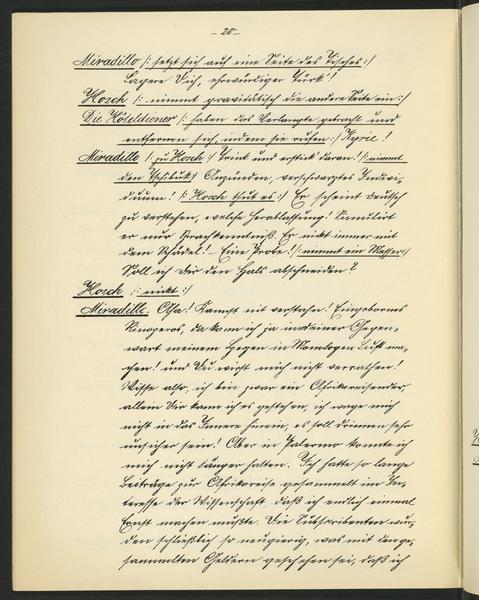 - 20 -
Miradillo /: setzt sich auf eine Seite des Tisches :/
Lagere Dich, ehrwürdiger Turk!
Hosch /: nimmt gravitätisch die andere Seite ein :/
Die Hôteldiener /: haben das Verlangte gebracht und
entfernen sich, indem sie rufen :/ Kyrie!
Miradillo /: zu Hosch :/ Trink und erstick daran! /: nimmt
den Tschibuk :/ Anzünden, verschwarztes Indivi-
duum! /: Hosch thut es :/ Er scheint deutsch
zu verstehen, welche Herablassung! Simulirt
er nur Sprachkenntniß. Er nickt immer mit
dem Schädel! Eine Probe! /: nimmt ein Messer :/
Soll ich Dir den Hals abschneiden?
Hosch /: nickt :/
Miradillo. Aha! Kampf nit verstahn! Eingebornes
Rinozeros, da kann ich ja in deiner Gegen-
wart meinem Herzen in Monologen Luft ma-
chen! und Du wirst mich nicht verrathen!
Wisse also, ich bin zwar ein Afrikareisender,
allein Dir kann ich es gestehen, ich wage mich
nicht in das Innere hinein, es soll drinnen sehr
unsicher sein! Aber in Palermo konnte ich
mich nicht länger halten. Ich hatte so lange
Beiträge zur Afrikareise gesammelt im In-
teresse der Wissenschaft, daß ich endlich einmal
Ernst machen mußte. Die Subscribenten wur-
den schließlich so neugierig, was mit den ge-
sammelten Geldern geschehen sei, daß ich